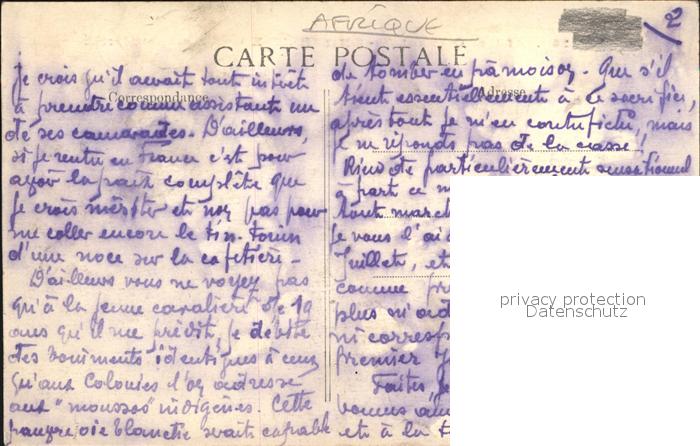 AFRIQUE
2
CARTE POSTALE
Correspondance
Adresse
je crois qu'il aurait tout intérêt
à prendre comme assistant un
de ses camarades. D'ailleurs,
si je rentre en France c'est pour
avoir la paix complète que
je crois mériter et non pas pour
me coller encore le tin-touin
d'une noce sur la cafetière -
D'ailleurs vous ne voyez pas
qu'à la jeune cavalière de 19
ans qu'il me prédit, je débite
des boniments identiques à ceux
qu'aux Colonies l'on adresse
aux "moussos" indigènes. Cette
pauvre oie blanche serait capable
de tomber en pâmoison. Que s'il
tient essentiellement à ce sacrifice
après tout je m'en contrefiche, mais
je ne réponds pas de la casse.
Rien de particulièrement sensationnel
à part ce
tout march
je vous l'ai
Juillet, et
comme
plus
ni corresp
premier
Faites,
bonnes
et à la
privacy protection
Datenschutz